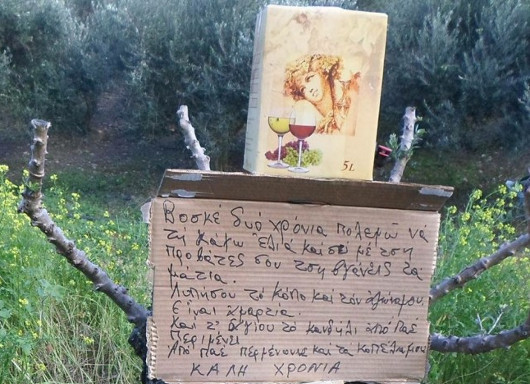 5L
Βοσκέ δυό χρόνια πολεμώ νά
τή κάμω Ελιά και συ μέ τση
προβάτες σου τση βγάνεις τα
μάτια.
Λυπήσου τό κόπο και τον
Είναι αμαρτία.
Και τ' άγιου τό καντήλι από πας
περιμένει
Από πας περμένουνε και τα κοπέλια μου
ΚΑΛΗ ΧΡΟΝΙΑ